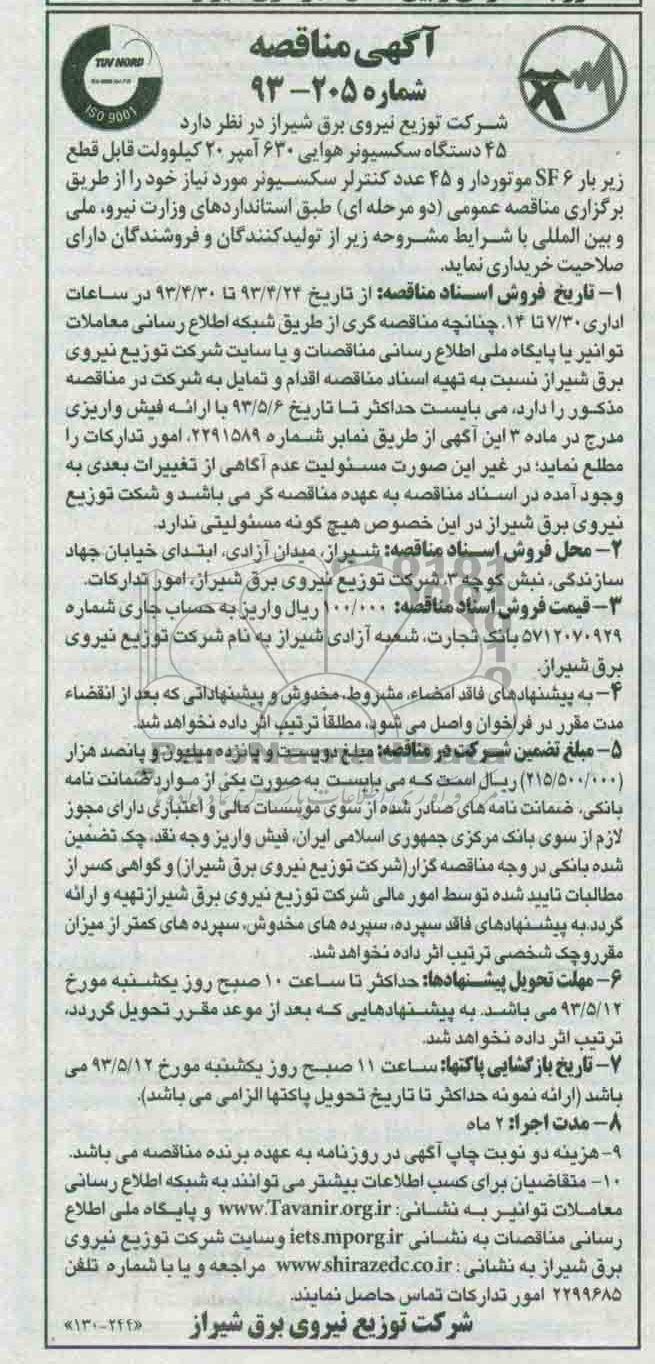 آگهی مناقصه
شماره ۲۰۵-۹۳
TUV NORD
ISO 9001
شرکت توزیع نیروی برق شیراز در نظر دارد
۴۵ دستگاه سکسیونر هوایی ۶۳۰ آمپر ۲۰ کیلوولت قابل قطع
زیر بار SF۶ موتوردار و ۴۵ عدد کنترلر سکسیونر مورد نیاز خود را از طریق
برگزاری مناقصه عمومی (دو مرحله ای) طبق استانداردهای وزارت نیرو، ملی
و بین المللی با شرایط مشروحه زیر از تولیدکنندگان و فروشندگان دارای
صلاحیت خریداری نماید.
۱- تاریخ فروش اسناد مناقصه: از تاریخ ۹۳/۴/۲۴ تا ۹۳/۴/۳۰ در ساعات
اداری ۷/۳۰ تا ۱۴. چنانچه مناقصه گری از طریق شبکه اطلاع رسانی معاملات
توانیر یا پایگاه ملی اطلاع رسانی مناقصات و یا سایت شرکت توزیع نیروی
برق شیراز نسبت به تهیه اسناد مناقصه اقدام و تمایل به شرکت در مناقصه
مذکور را دارد، می بایست حداکثر تا تاریخ ۹۳/۵/۶ با ارائه فیش واریزی
مدرج در ماده ۳ این آگهی از طریق نمابر شماره ۲۲۹۱۵۸۹، امور تدارکات را
مطلع نماید؛ در غیر این صورت مسئولیت عدم آگاهی از تغییرات بعدی به
وجود آمده در اسناد مناقصه به عهده مناقصه گر می باشد و شکت توزیع
نیروی برق شیراز در این خصوص هیچ گونه مسئولیتی ندارد.
۲- محل فروش اسناد مناقصه: شیراز، میدان آزادی، ابتدای خیابان جهاد
سازندگی، نبش کوچه ۳، شرکت توزیع نیروی برق شیراز، امور تدارکات.
۳- قیمت فروش اسناد مناقصه: ۱۰۰/۰۰۰ ریال واریز به حساب جاری شماره
۵۷۱۲۰۷۰۹۲۹ بانک تجارت، شعبه آزادی شیراز به نام شرکت توزیع نیروی
برق شیراز.
۴- به پیشنهادهای فاقد امضاء، مشروط، مخدوش و پیشنهاداتی که بعد از انقضاء
مدت مقرر در فراخوان واصل می شود، مطلقاً ترتیب اثر داده نخواهد شد.
۵- مبلغ تضمین شرکت در مناقصه: مبلغ دویست و پانزده میلیون و پانصد هزار
(۲۱۵/۵۰۰/۰۰۰) ریال است که می بایست به صورت یکی از موارد ضمانت نامه
بانکی، ضمانت نامه های صادر شده از سوی موسسات مالی و اعتباری دارای مجوز
لازم از سوی بانک مرکزی جمهوری اسلامی ایران، فیش واریز وجه نقد، چک تضمین
شده بانکی در وجه مناقصه گزار(شرکت توزیع نیروی برق شیراز) و گواهی کسر از
مطالبات تایید شده توسط امور مالی شرکت توزیع نیروی برق شیراز تهیه و ارائه
گردد. به پیشنهادهای فاقد سپرده، سپرده های مخدوش، سپرده های کمتر از میزان
مقرر و چک شخصی ترتیب اثر داده نخواهد شد.
۶- مهلت تحویل پیشنهادها: حداکثر تا ساعت ۱۰ صبح روز یکشنبه مورخ
۹۳/۵/۱۲ می باشد. به پیشنهادهایی که بعد از موعد مقرر تحویل گرردد،
ترتیب اثر داده نخواهد شد.
۷- تاریخ بازگشایی پاکتها: ساعت ۱۱ صبح روز یکشنبه مورخ ۹۳/۵/۱۲ می
باشد (ارائه نمونه حداکثر تا تاریخ تحویل پاکتها الزامی می باشد).
۸- مدت اجرا: ۲ ماه
۹- هزینه دو نوبت چاپ آگهی در روزنامه به عهده برنده مناقصه می باشد.
۱۰- متقاضیان برای کسب اطلاعات بیشتر می توانند به شبکه اطلاع رسانی
معاملات توانیر به نشانی: www.Tavanir.org.ir و پایگاه ملی اطلاع
رسانی مناقصات به نشانی iets.mporg.ir وسایت شرکت توزیع نیروی
برق شیراز به نشانی: www.shirazedc.co.ir مراجعه و یا با شماره تلفن
۲۲۹۹۶۸۵ امور تدارکات تماس حاصل نمایند.
شرکت توزیع نیروی برق شیراز
«۱۳۰-۲۴۴»